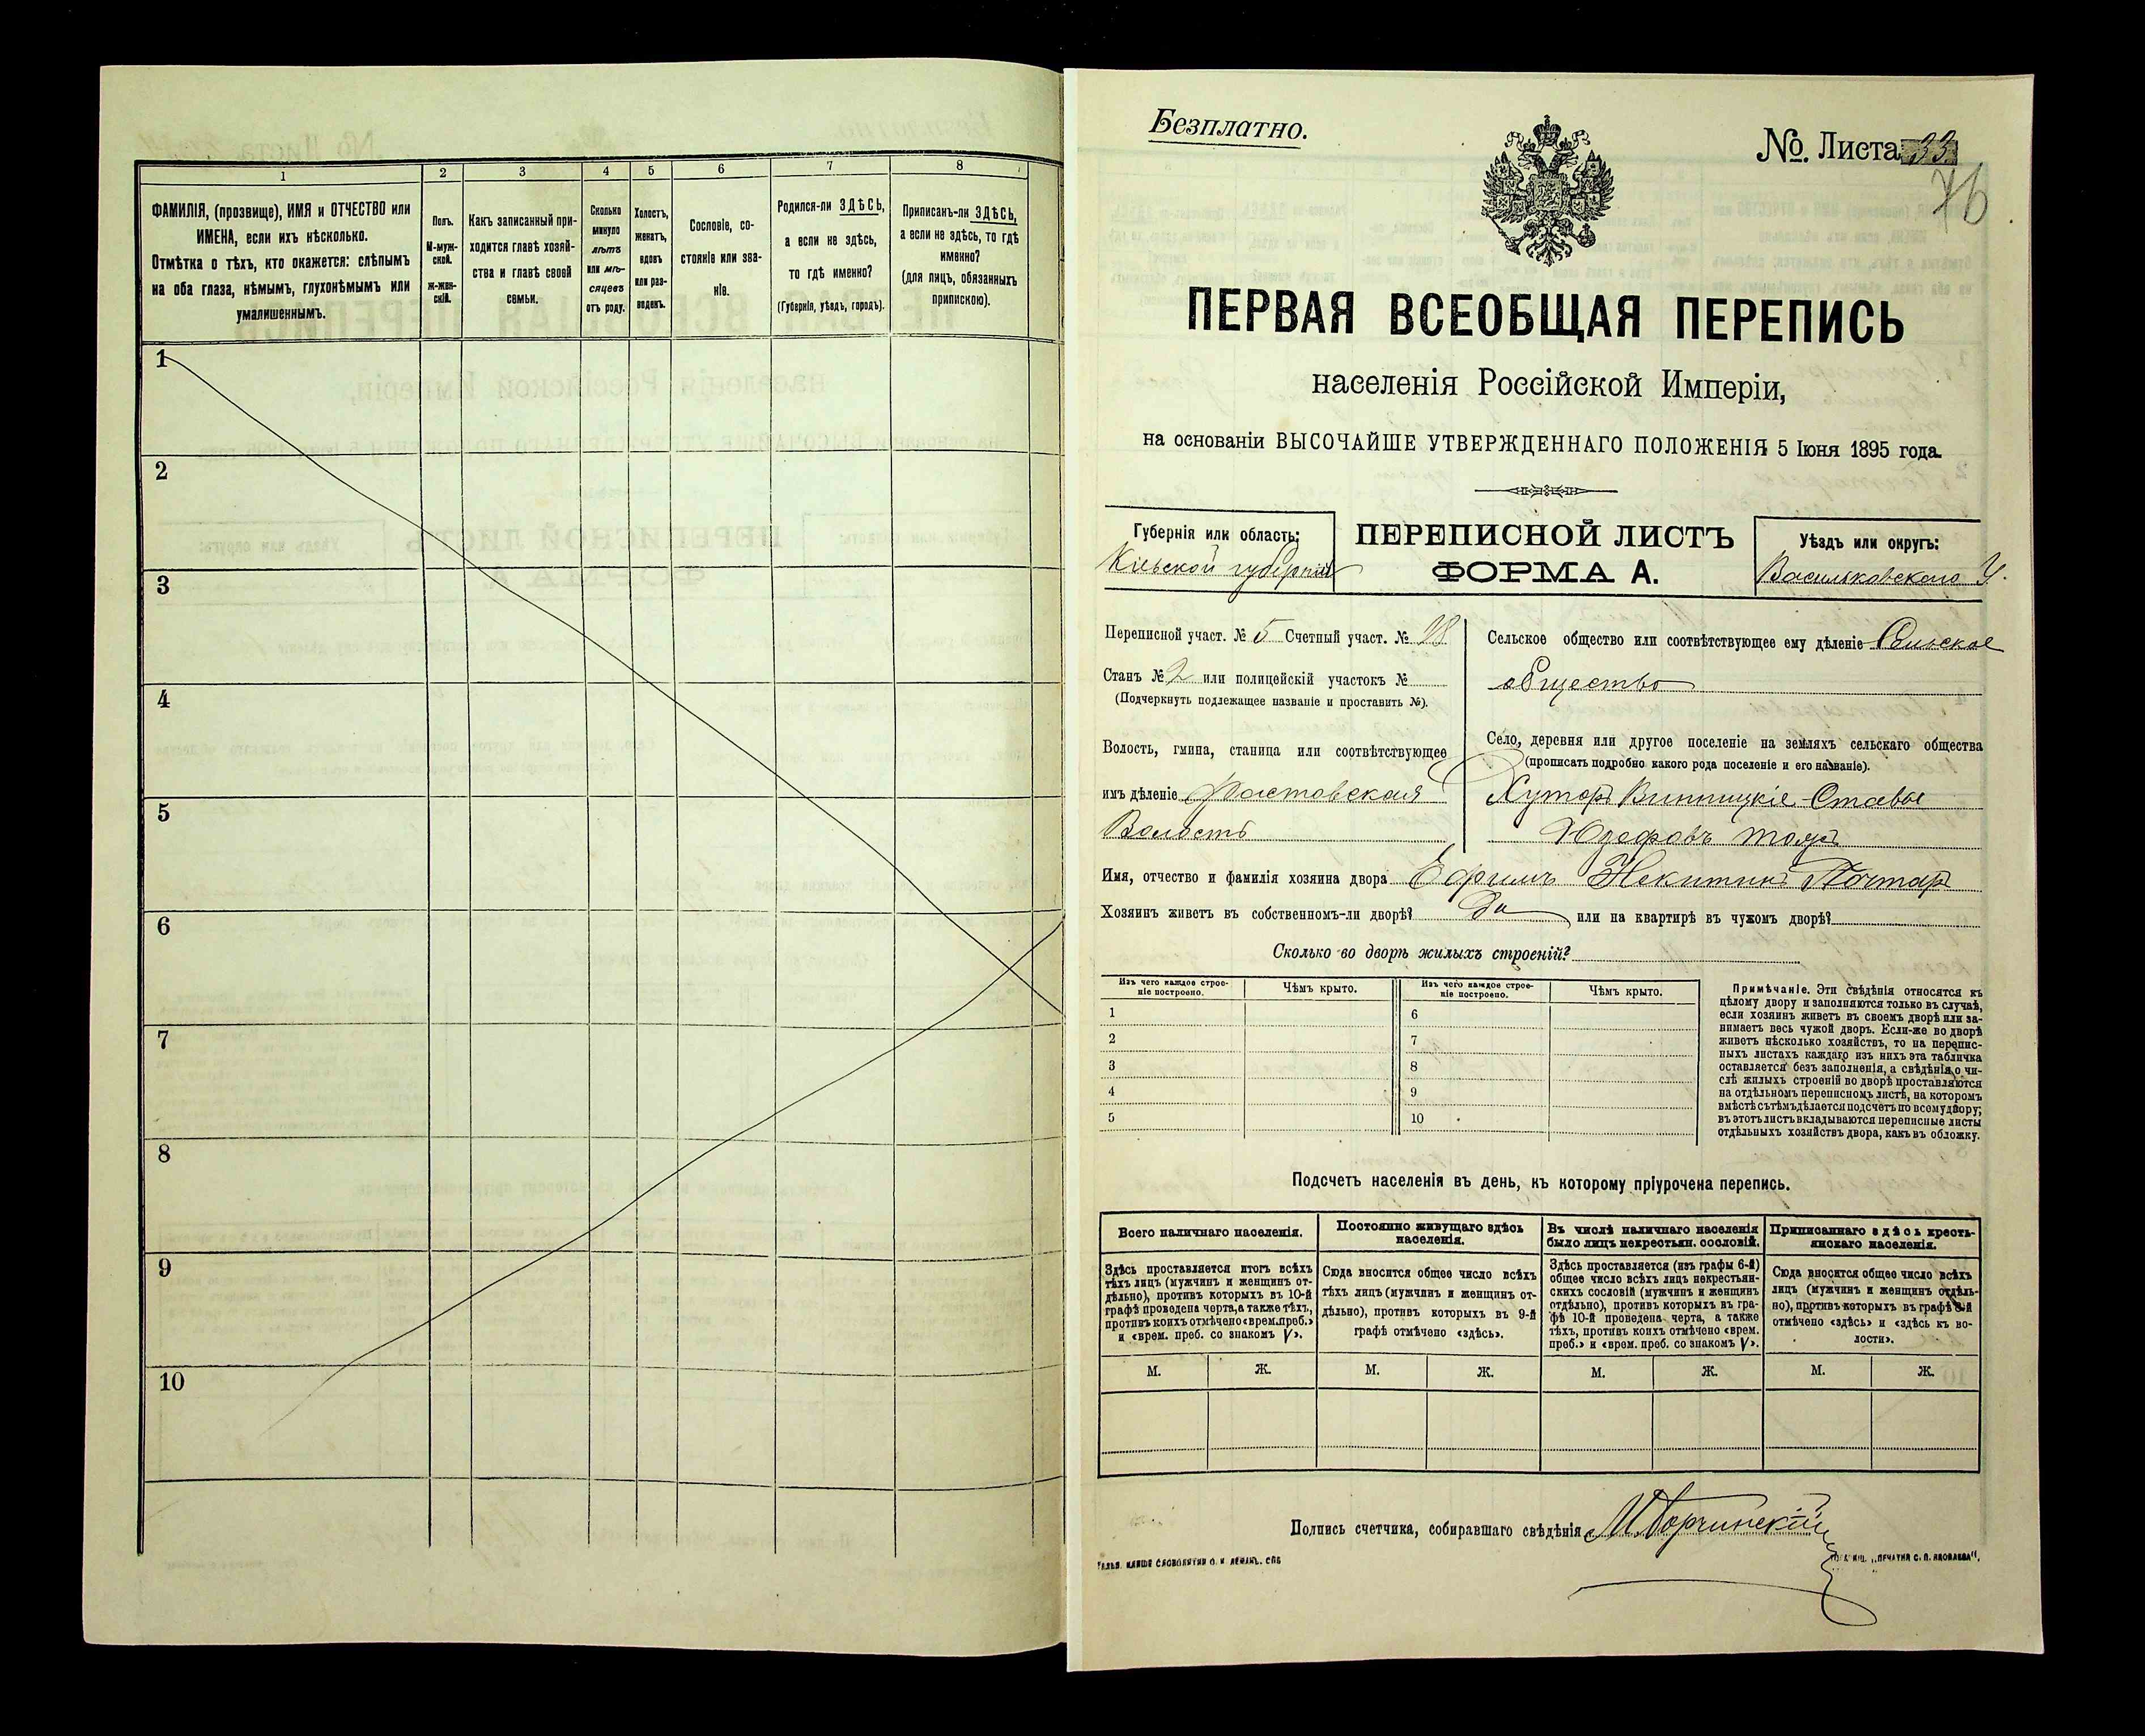 1
2
3
4
5
6
7
8
ФАМИЛІЯ, (прозвище), ИМЯ и ОТЧЕСТВО или
ИМЕНА, если ихъ нѣсколько.
Отмѣтка о тѣхъ, кто окажется: слѣпымъ
на оба глаза, нѣмымъ, глухонѣмымъ или
умалишеннымъ.
Полъ.
М-муж-
ской.
ж-жен-
скій.
Какъ записанный при-
ходится главѣ хозяй-
ства и главѣ своей
семьи.
Сколько
минуло
лѣтъ
или мѣ-
сяцевъ
отъ роду.
Холостъ,
женатъ,
вдовъ
или раз-
веденъ.
Сословіе, со-
стояніе или зва-
ніе.
Родился-ли ЗДѢСЬ,
а если не здѣсь,
то гдѣ именно?
(Губернія, уѣздъ, городъ).
Приписанъ-ли ЗДѢСЬ,
а если не здѣсь, то гдѣ
именно?
(для лицъ, обязанныхъ
припискою).
1
2
3
4
5
6
7
8
9
10
Безплатно.
№. Листа 33
76
ПЕРВАЯ ВСЕОБЩАЯ ПЕРЕПИСЬ
населенія Россійской Имперіи,
на основаніи ВЫСОЧАЙШЕ УТВЕРЖДЕННАГО ПОЛОЖЕНІЯ 5 Іюня 1895 года.
Губернія или область:
Кіевской губерніи
ПЕРЕПИСНОЙ ЛИСТЪ
ФОРМА А.
Уѣздъ или округъ:
Васильковскаго У.
Переписной участ. № 5 Счетный участ. № 18
Станъ № 2 или полицейскій участокъ №
(Подчеркнуть подлежащее названіе и проставить №).
Волость, гмина, станица или соотвѣтствующее
имъ дѣленіе Фастовская
Волость
Сельское общество или соотвѣтствующее ему дѣленіе Сельское
общество
Село, деревня или другое поселеніе на земляхъ сельскаго общества
(прописать подробно какого рода поселеніе и его названіе).
Хуторъ Винницкіе-Ставы
Имя, отчество и фамилія хозяина двора Ефимъ Некитинъ Почтар
Хозяинъ живетъ въ собственномъ-ли дворѣ? Да или на квартирѣ въ чужомъ дворѣ?
Сколько во дворѣ жилыхъ строеній?
Изъ чего каждое строе-
ніе построено.
Чѣмъ крыто.
Изъ чего каждое строе-
ніе построено.
Чѣмъ крыто.
1
2
3
4
5
6
7
8
9
10
Примѣчаніе. Эти свѣдѣнія относятся къ
цѣлому двору и заполняются только въ случаѣ,
если хозяинъ живетъ въ своемъ дворѣ или за-
нимаетъ весь чужой дворъ. Если-же во дворѣ
живетъ нѣсколько хозяйствъ, то на перепис-
ныхъ листахъ каждаго изъ нихъ эта табличка
оставляется безъ заполненія, а свѣдѣнія о чи-
слѣ жилыхъ строеній во дворѣ проставляются
на отдѣльномъ переписномъ листѣ, на которомъ
вмѣстѣ съ тѣмъ дѣлается подсчетъ по всему двору;
въ этотъ листъ вкладываются переписные листы
отдѣльныхъ хозяйствъ двора, какъ въ обложку.
Подсчетъ населенія въ день, къ которому пріурочена перепись.
Всего наличнаго населенія.
Здѣсь проставляется итогъ всѣхъ
тѣхъ лицъ (мужчинъ и женщинъ от-
дѣльно), противъ которыхъ въ 10-й
графѣ проведена черта, а также тѣхъ,
противъ коихъ отмѣчено «врем. преб.»
и «врем. преб. со знакомъ V».
Постоянно живущаго здѣсь
населенія.
Сюда вносится общее число всѣхъ
тѣхъ лицъ (мужчинъ и женщинъ от-
дѣльно), противъ которыхъ въ 9-й
графѣ отмѣчено «здѣсь».
Въ числѣ наличнаго населенія
было лицъ некрестьян. сословій.
Здѣсь проставляется (изъ графы 6-й)
общее число всѣхъ лицъ некрестьян-
скихъ сословій (мужчинъ и женщинъ
отдѣльно), противъ которыхъ въ гра-
фѣ 10-й проведена черта, а также
тѣхъ, противъ коихъ отмѣчено «врем.
преб.» и «врем. преб. со знакомъ V».
Приписаннаго здѣсь кресть-
янскаго населенія.
Сюда вносится общее число всѣхъ
лицъ (мужчинъ и женщинъ отдѣль-
но), противъ которыхъ въ графѣ 8-й
отмѣчено «здѣсь» и «здѣсь къ во-
лости».
М.
Ж.
М.
Ж.
М.
Ж.
М.
Ж.
Подпись счетчика, собиравшаго свѣдѣнія